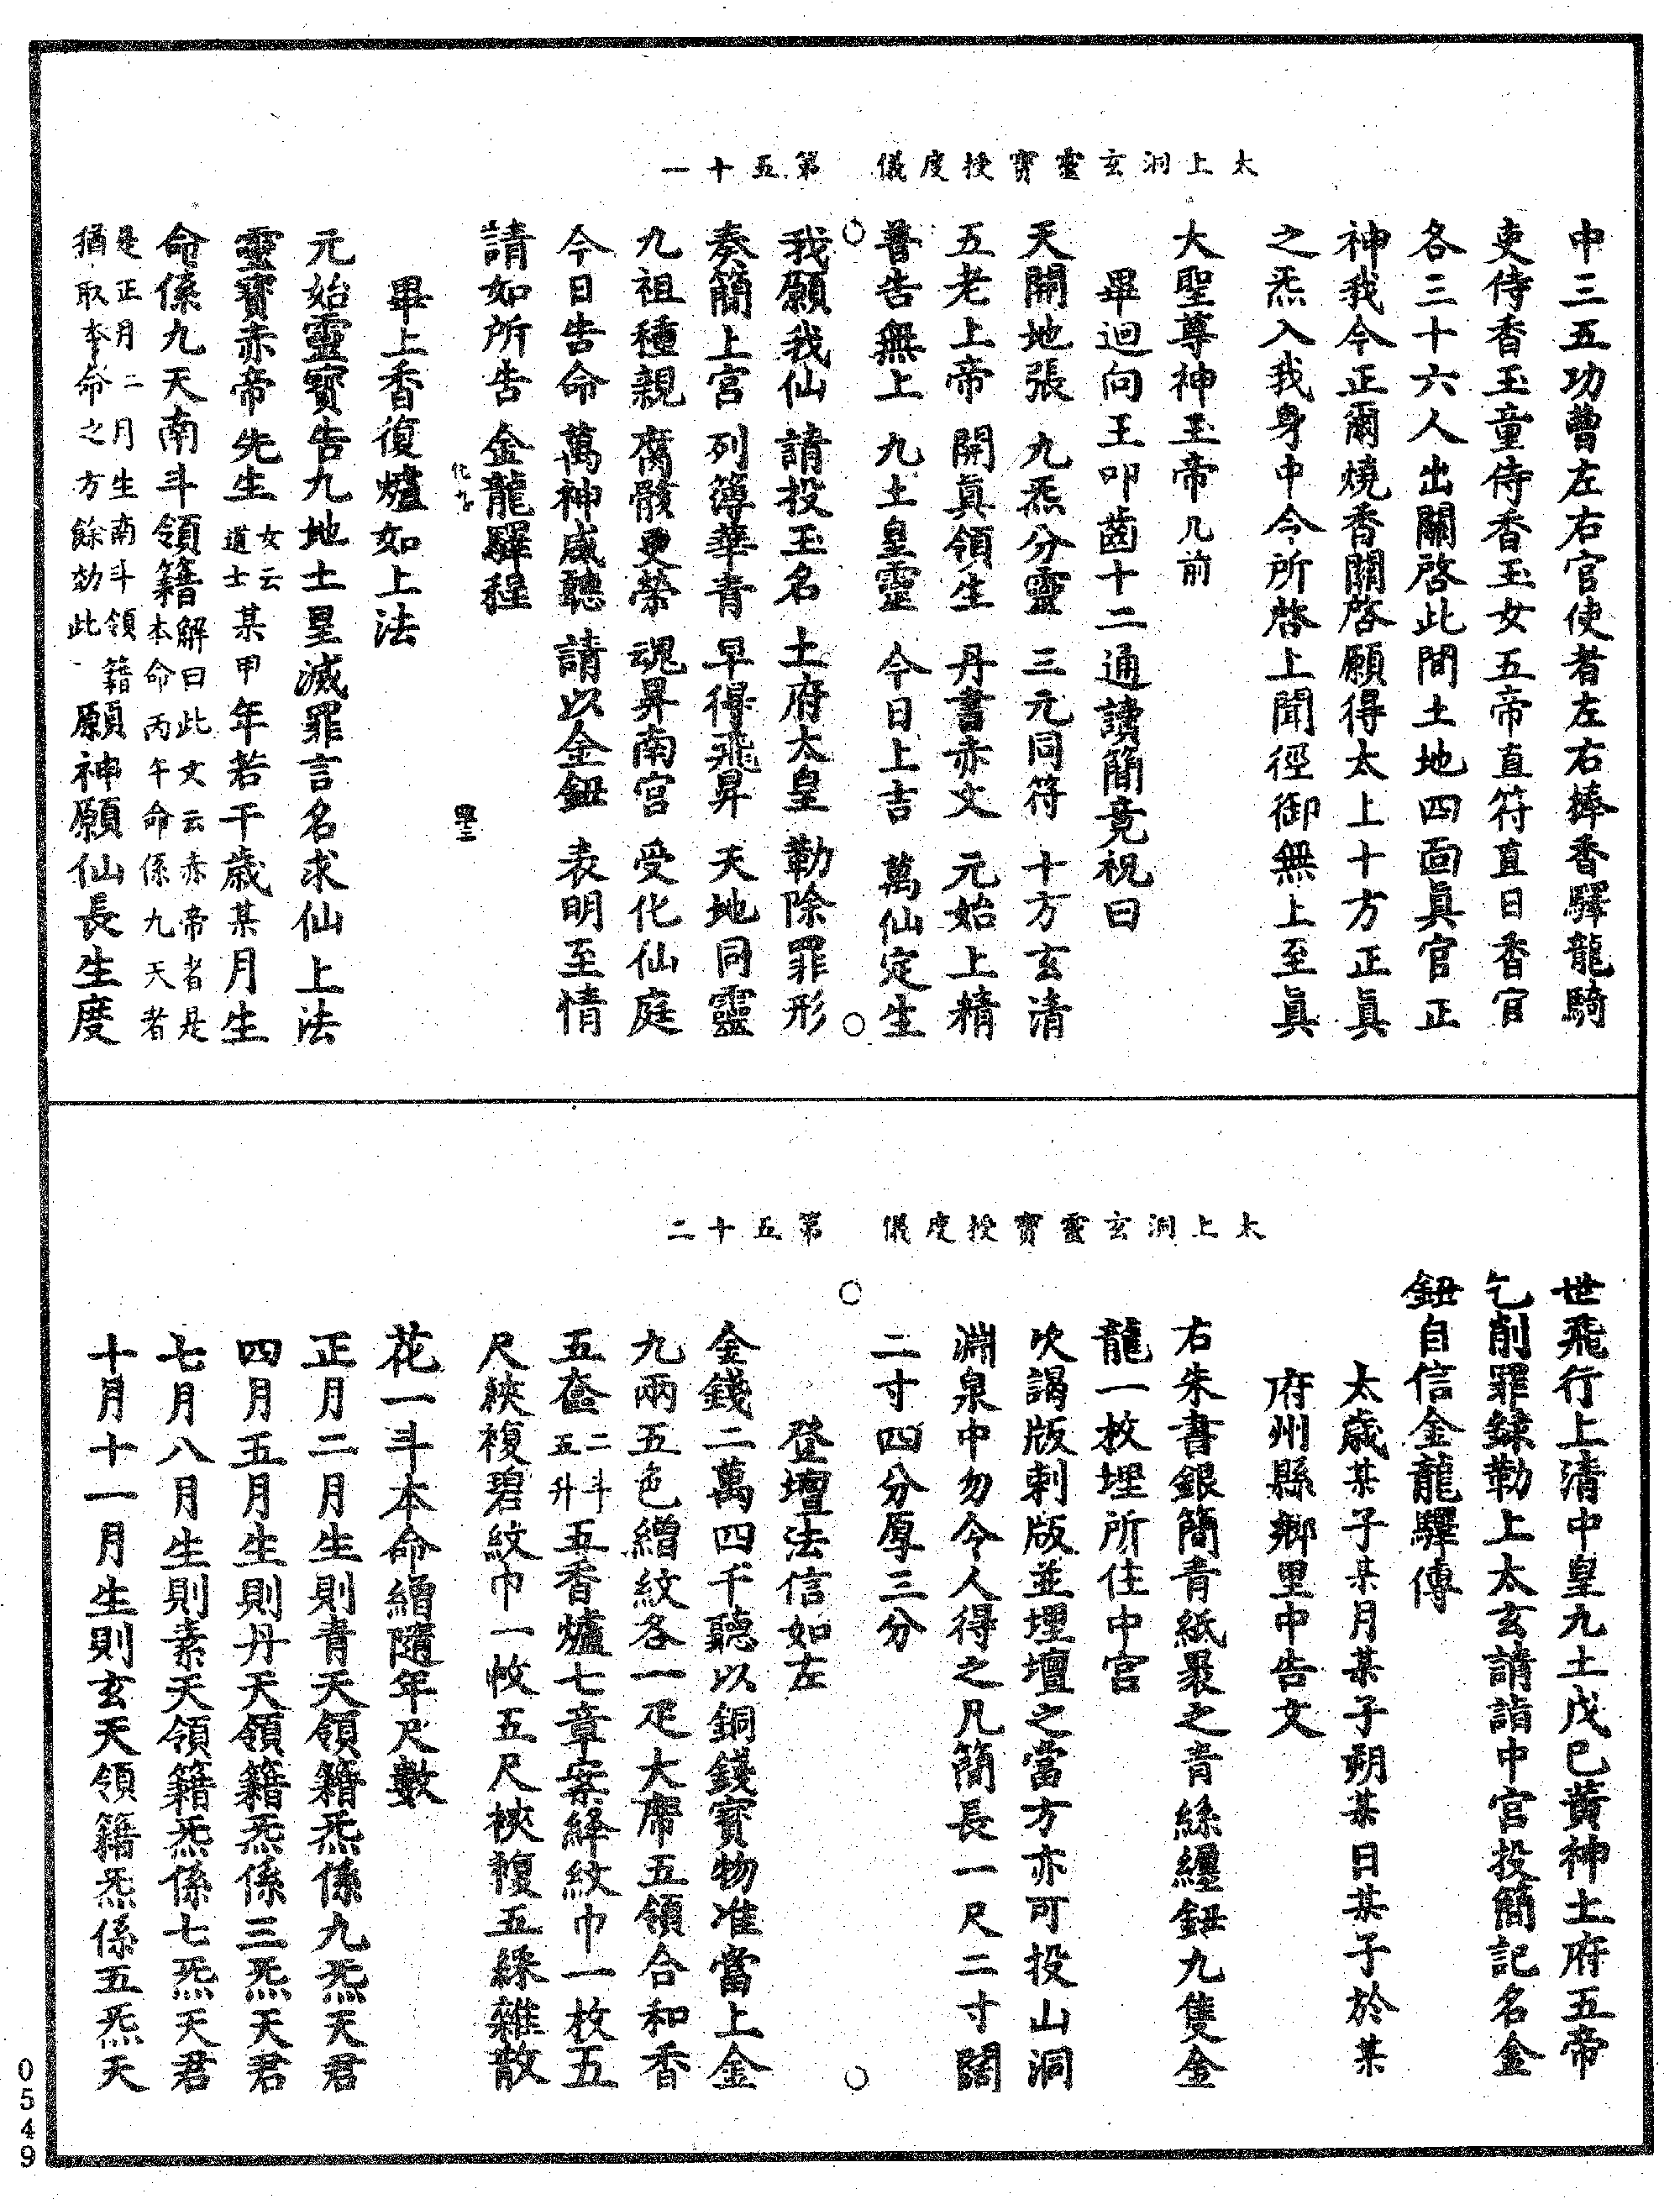 太上洞玄靈寶授度儀　第五十一
中三五功曹左右官使者左右捧香驛龍騎
吏侍香玉童侍香玉女五帝直符直日香官
各三十六人出關啓此間土地四面眞官正
神我今正爾燒香關啓願得太上十方正眞
之炁入我身中令所啓上聞徑御無上至眞
大聖尊神玉帝几前
畢迴向王叩齒十二通讀簡竟祝曰
天開地張　九炁分靈　三元同符　十方玄清
五老上帝　開眞領生　丹書赤文　元始上精
普告無上　九土皇靈　今日上吉　萬仙定生
我願我仙　請投玉名　土府太皇　勒除罪形
奏簡上宮　列簿華青　早得飛昇　天地同靈
九祖種親　腐骸更榮　魂昇南宮　受化仙庭
今日告命　萬神咸聽　請以金鈕　表明至情
請如所告　金龍驛程
畢上香復爐如上法
元始靈寶告九地土皇滅罪言名求仙上法
靈寶赤帝先生女云道士某甲年若干歲某月生
命係九天南斗領籍解曰此文云赤帝者是本命丙午命係九天者
是正月二月生南斗領籍猶取本命之方餘効此願神願仙長生度
太上洞玄靈寶授度儀　第五十二
世飛行上清中皇九土戊己黃神土府五帝
乞削罪錄勒上太玄請詣中宮投簡記名金
鈕自信金龍驛傳
太歲某子某月某子朔某日某子於某
府州縣鄉里中告文
右朱書銀簡青紙裹之青絲纏鈕九隻金
龍一枚埋所住中宮
次謁版刺版並埋壇之當方亦可投山洞
淵泉中勿令人得之凡簡長一尺二寸闊
二寸四分厚三分
登壇法信如左
金錢二萬四千聽以銅錢寶物准當上金
九兩五色繒紋各一疋大席五領合和香
五奩二斗五升五香爐七章案絳紋巾一枚五
尺裌複碧紋巾一枚五尺裌複五綵雜散
花一斗本命繒隨年尺數
正月二月生則青天領籍炁係九炁天君
四月五月生則丹天領籍炁係三炁天君
七月八月生則素天領籍炁係七炁天君
十月十一月生則玄天領籍炁係五炁天
0549